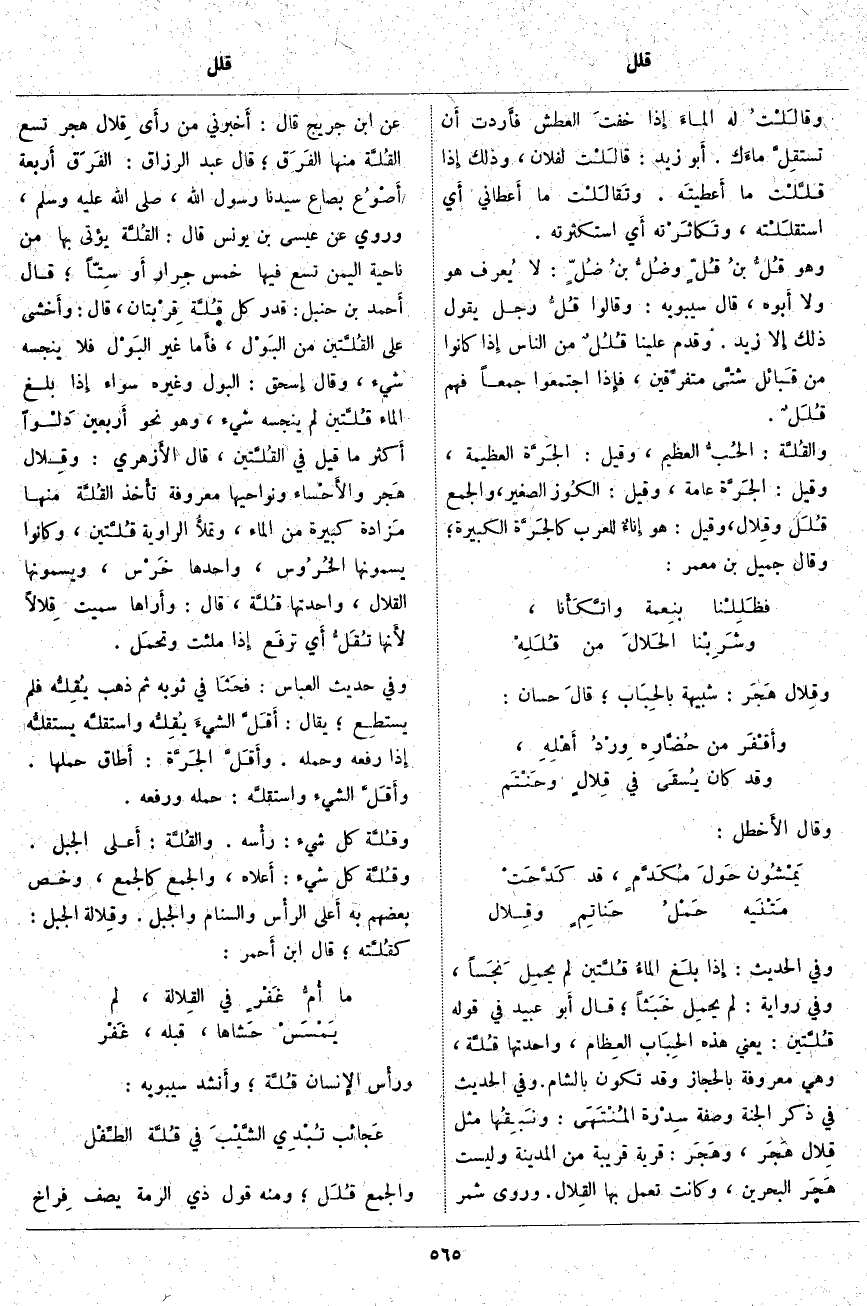 قلل
قلل
وقالَلْتُ له الماءَ إذا خفتَ العطش فأردت أن
تستقلَّ ماءَك . أبو زيد : قالَلْت لفلان ، وذلك إذا
قلَّلْت ما أَعطيتَه . وتَقالَلْت ما أَعطاني أي
استقلَلْته ، وتكاثَرْته أي استكثرته .
وهو قُلُّ بنُ قُلٍّ وضُلُّ بنُ ضُلٍّ : لا يُعرف هو
ولا أَبوه ، قال سيبويه : وقالوا قُلُّ رجل يقول
ذلك إلا زيد . وقدم علينا قُلُلٌ من الناس إذا كانوا
من قَبائل شتَّى متفرِّقين ، فإذا اجتمعوا جمعاً فهم
قُلَلٌ .
والقُلَّة : الحُبُّ العظيم ، وقيل : الجَرَّة العظيمة ،
وقيل : الجَرَّة عامة ، وقيل : الكُوز الصغير ، والجمع
قُلَل وقِلال ، وقيل : هو إناءٌ للعرب كالجَرَّة الكبيرة ؛
وقال جميل بن معمر :
فظَلِلْنا بنِعمة واتَّكَأْنا ،
وشَرِبْنا الحَلالَ من قُلَلِهْ
وقِلال هَجَر : شبيهة بالحِبَاب ؛ قال حسان :
وأَقْفَر من حُضَّارِه وِرْدُ أَهْلِهِ ،
وقد كان يُسقَى في قِلالٍ وحَنْتَم
وقال الأخطل :
يَمْشُون حَولَ مُكَدَّمٍ ، قد كَدَّحَتْ
مَتْنَيه حَمْلُ حَناتِمٍ وقِلال
وفي الحديث : إذا بلَغ الماءُ قُلَّتين لم يحمِل نَجَساً ،
وفي رواية : لم يحمِل خَبَثاً ؛ قال أبو عبيد في قوله
قُلَّتين : يعني هذه الحِبَاب العِظام ، واحدتها قُلَّة ،
وهي معروفة بالحجاز وقد تكون بالشام . وفي الحديث
في ذكر الجنة وصفة سِدْرة المُنْتَهَى : ونَبِقُها مثل
قِلال هَجَر ، وهَجَر : قرية قريبة من المدينة وليست
هَجَر البحرين ، وكانت تعمل بها القِلال . وروى شمر
عن ابن جريج قال : أخبرني من رأى قِلال هجر تسع
القُلَّة منها الفَرَق ؛ قال عبد الرزاق : الفَرَق أربعة
أَصْوُع بصاع سيدنا رسول الله ، صلى الله عليه وسلم ،
وروي عن عيسى بن يونس قال : القُلَّة يؤتى بها من
ناحية اليمن تسع فيها خمس جرار أو سِتّاً ؛ قال
أحمد بن حنبل : قدر كل قُلَّة قِرْبتان ، قال : وأخشى
على القُلَّتين من البَوْل ، فأما غير البَوْل فلا ينجسه
شيء ، وقال إسحق : البول وغيره سواء إذا بلغ
الماء قُلَّتين لم ينجسه شيء ، وهو نحو أربعين دَلْواً
أكثر ما قيل في القُلَّتين ، قال الأزهري : وقِلال
هَجَر والأحْساء ونواحيها معروفة تأخذ القُلَّة منها
مَزادة كبيرة من الماء ، وتملأُ الراوية قُلَّتين ، وكانوا
يسمونها الخُرُوس ، واحدها خَرْس ، ويسمونها
القلال ، واحدتها قُلَّة ، قال : وأراها سميت قِلالاً
لأنها تُقَلُّ أي ترفَع إذا ملئت وتحمَل .
وفي حديث العباس : فحَثَا في ثوبه ثم ذهب يُقِلُّه فلم
يستطع ؛ يقال : أَقَلَّ الشيءَ يُقِلُّه واستقلَّه يستقلُّه
إذا رفعه وحمله . وأَقَلَّ الجَرَّة : أطاق حملها .
وأَقَلَّ الشيء واستقلَّه : حمله ورفعه .
وقُلَّة كل شيء : رأسه . والقُلَّة : أعلى الجبل .
وقُلَّة كل شيء : أعلاه ، والجمع كالجمع ، وخص
بعضهم به أعلى الرأس والسنام والجبل . وقِلالة الجبل :
كقُلَّته ؛ قال ابن أحمر :
ما أُمُّ غَفْرٍ في القِلالة ، لم
يَمْسَسْ حَشاها ، قبله ، غَفْر
ورأس الإنسان قُلَّة ؛ وأنشد سيبويه :
عَجائب تُبْدِي الشَّيْبَ في قُلَّة الطِّفْل
والجمع قُلَل ؛ ومنه قول ذي الرمة يصف فِراخ
٥٦٥